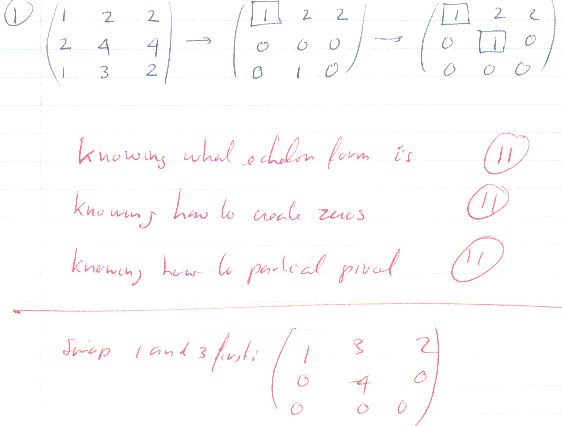 ① ( 1 2 2 ) → ( 1 2 2 ) → ( 1 2 2 )
( 2 4 4 ) ( 0 0 0 ) ( 0 1 0 )
( 1 3 2 ) ( 0 1 0 ) ( 0 0 0 )
Knowing what echelon form is 11
Knowing how to create zeros 11
Knowing how to partial pivot 11
Swap 1 and 3 first: ( 1 3 2 )
( 0 -4 0 )
( 0 0 0 )